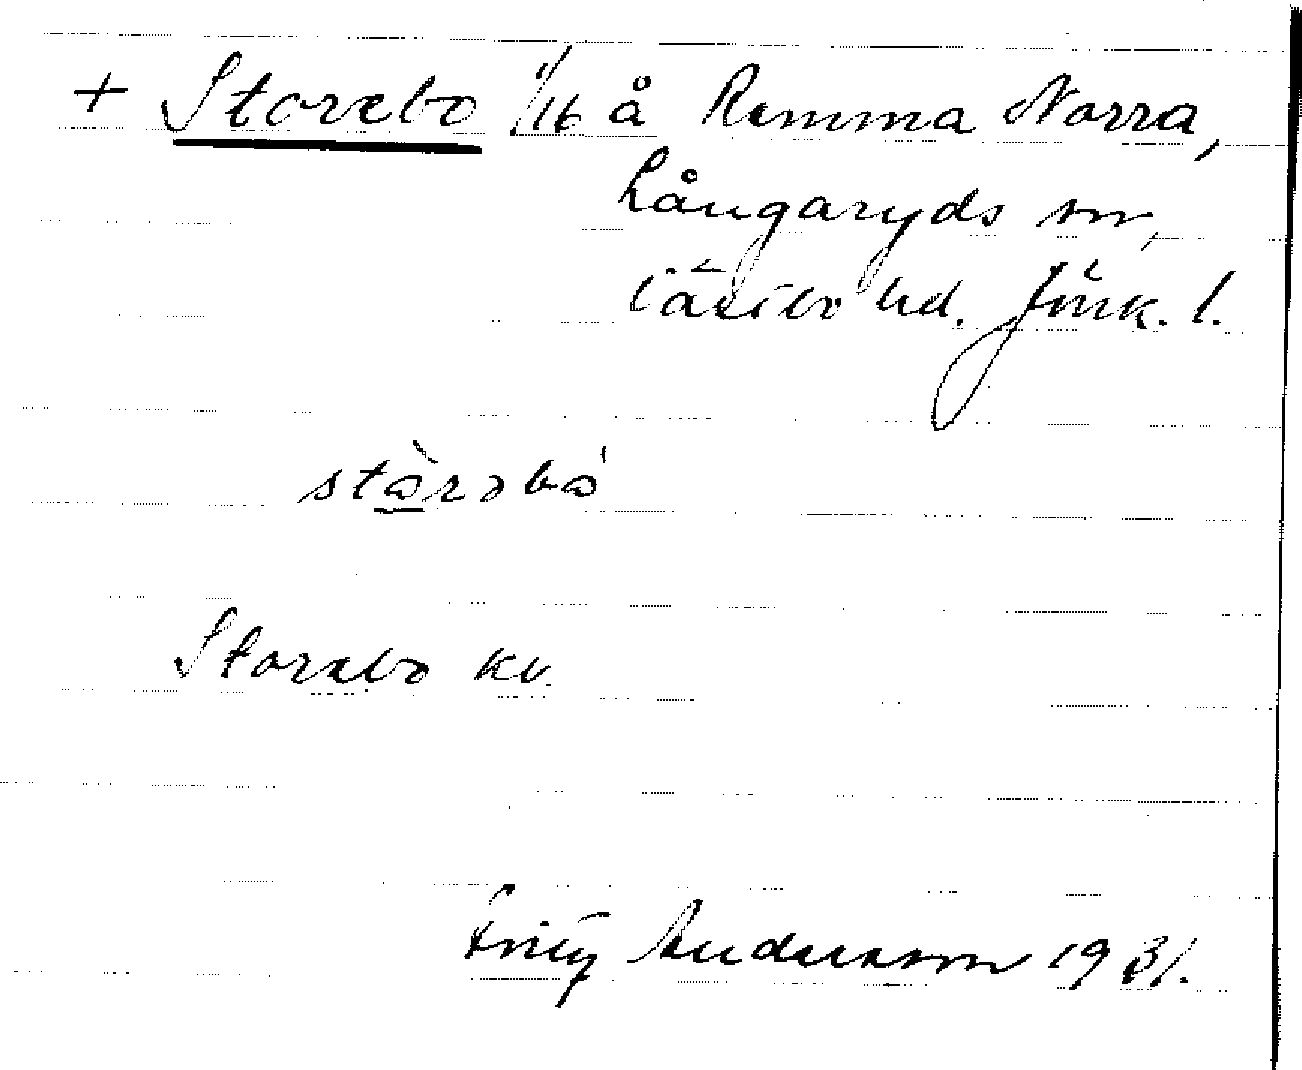 + Storebo 1/16 å Remma Norra,
Långaryds sn,
Västbo hd. Jönk. l.
stòrəbó
Storebo kv.
Fritz Andersson 1931.